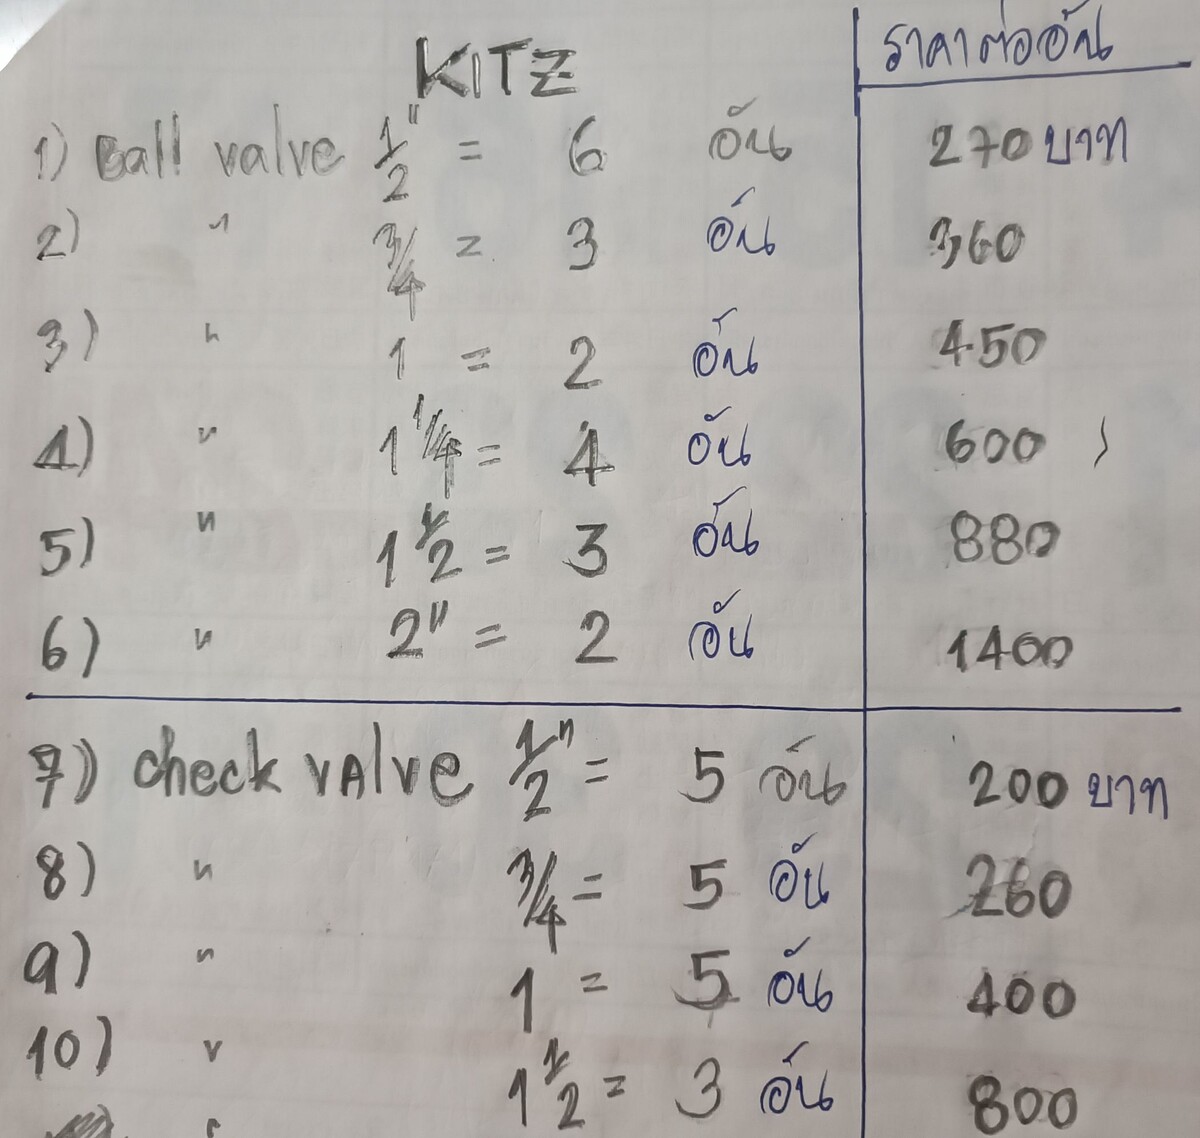 KITZ ราคาต่ออัน
1) Ball valve 1/2" = 6 อัน 270 บาท
2) " 3/4 = 3 อัน 360
3) " 1 = 2 อัน 450
4) " 1 1/4 = 4 อัน 600
5) " 1 1/2 = 3 อัน 880
6) " 2" = 2 อัน 1400
7) check vAlve 1/2" = 5 อัน 200 บาท
8) " 3/4 = 5 อัน 260
9) " 1 = 5 อัน 400
10) " 1 1/2 = 3 อัน 800